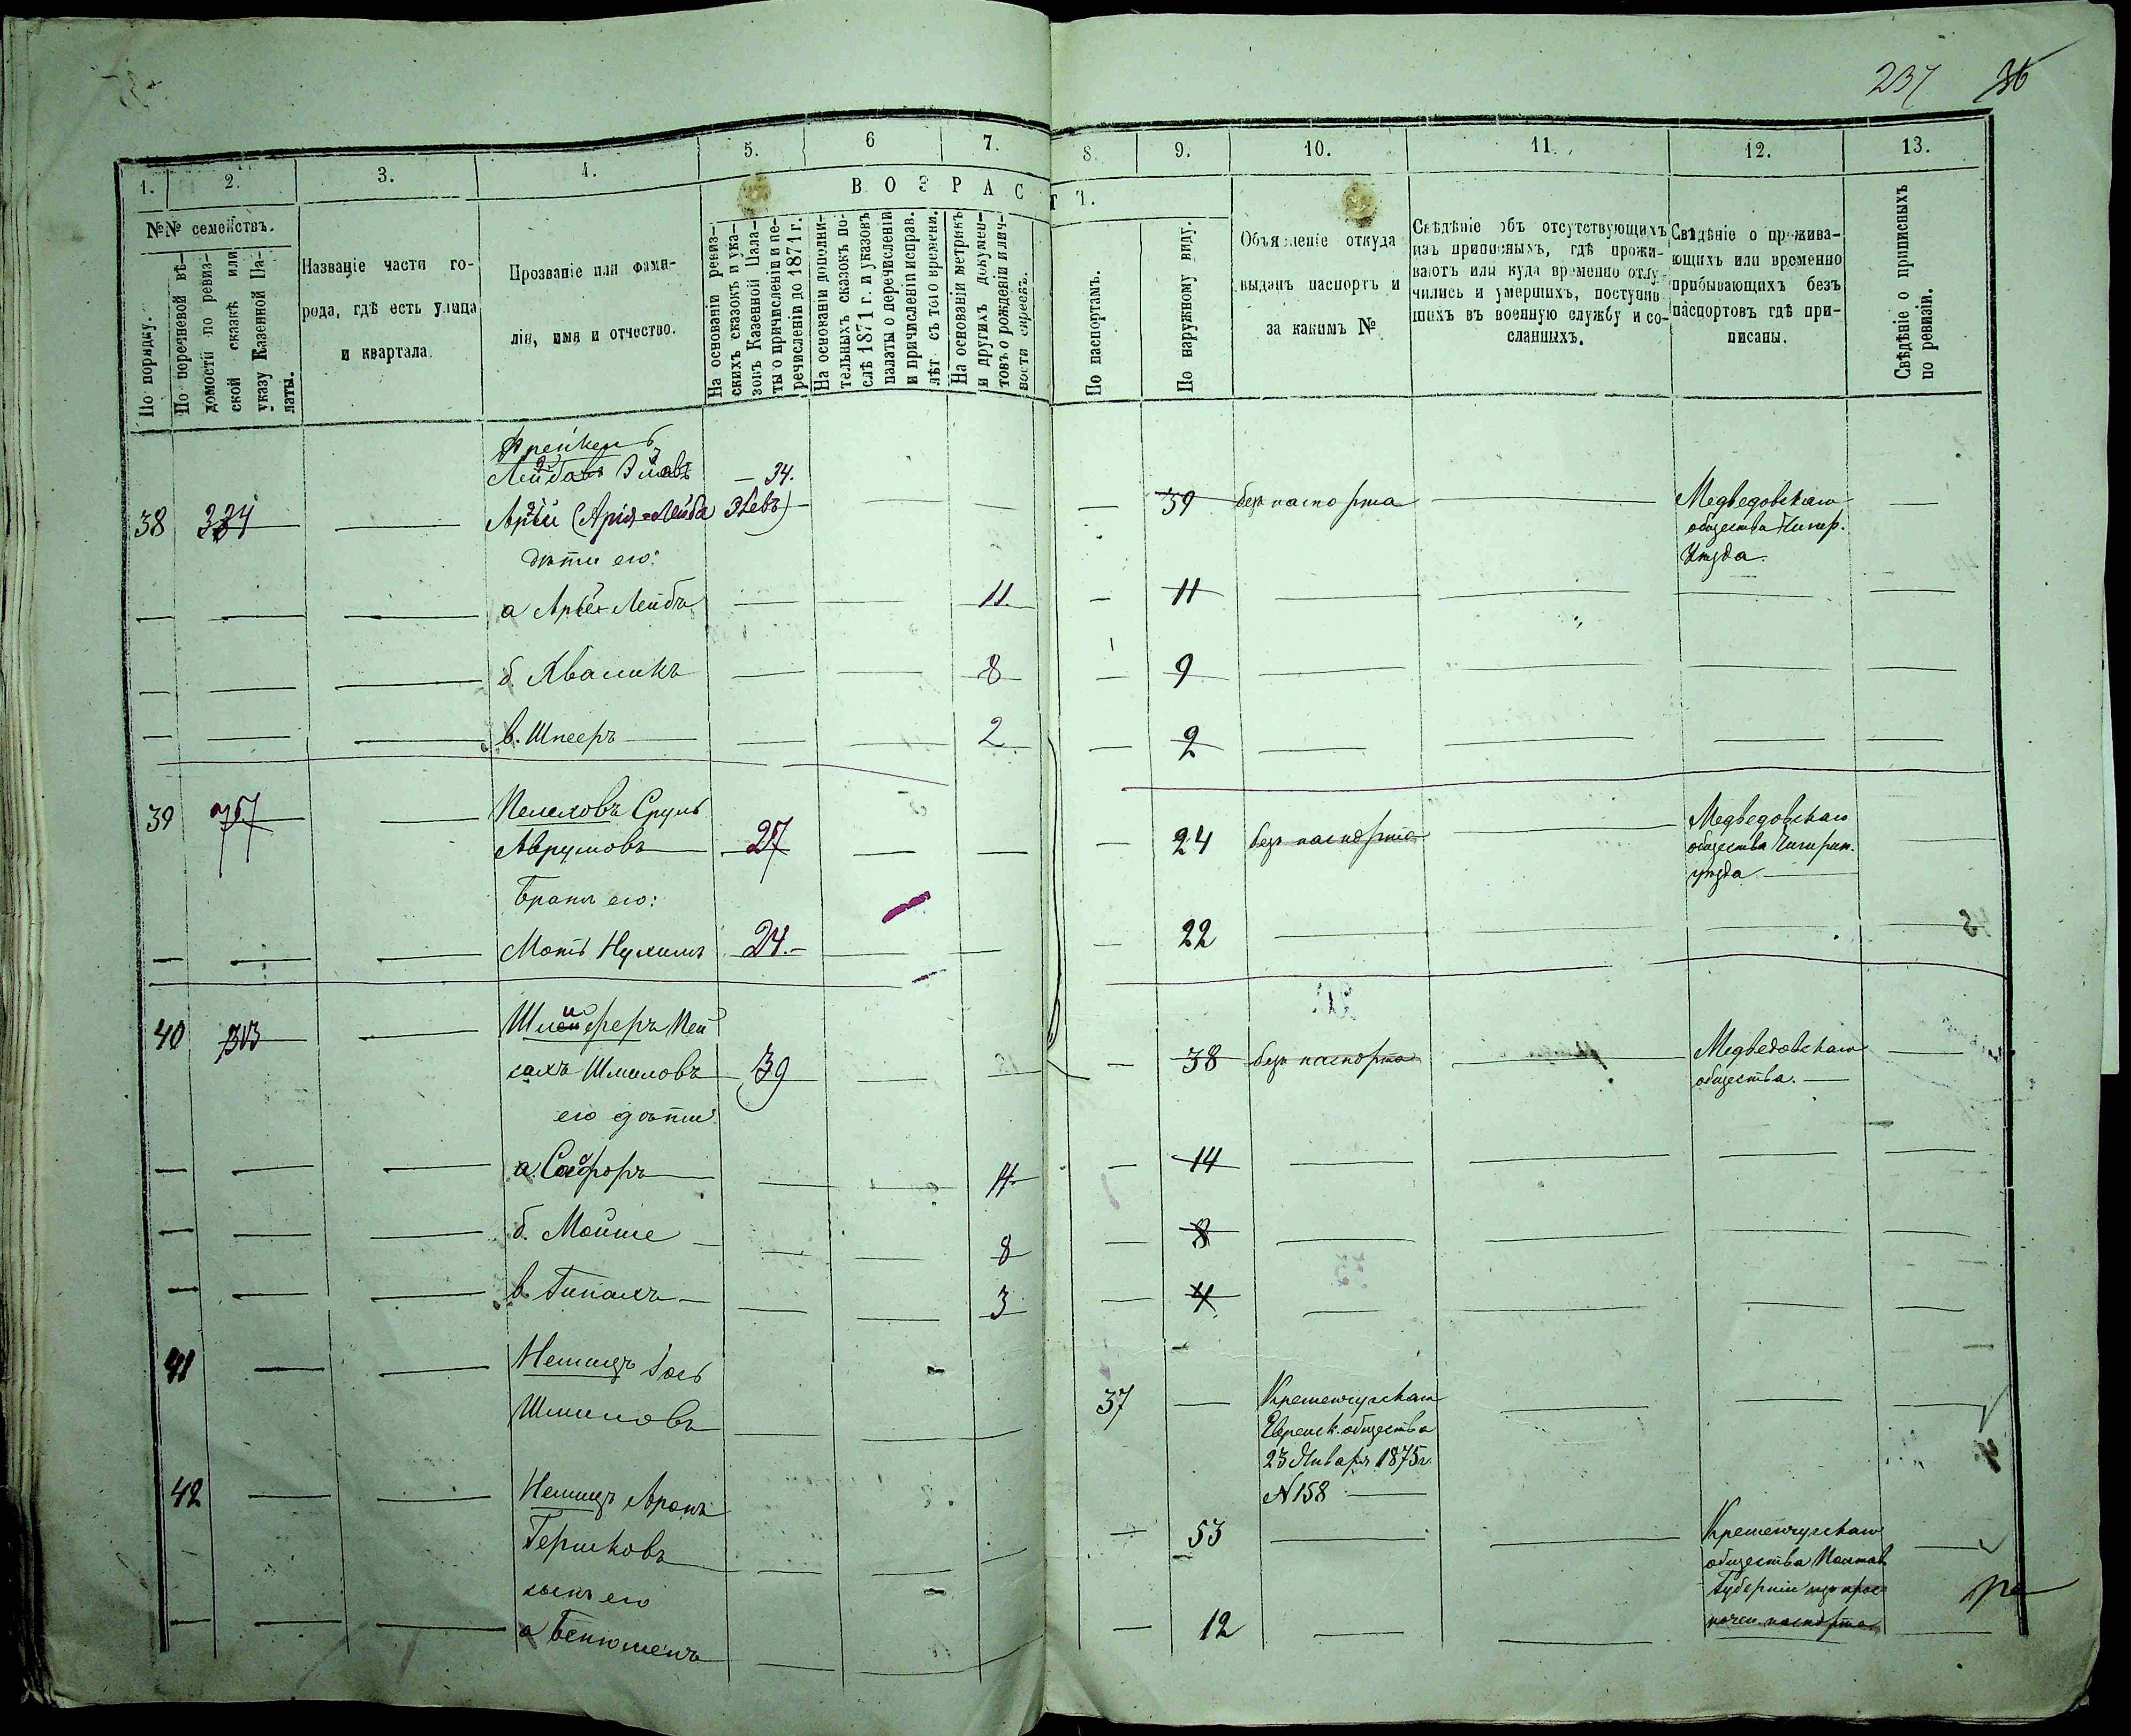 237 36
1. 2. 3. 4. 5. 6 7. 8. 9. 10. 11. 12. 13.
№№ семействъ.
По порядку.
По перечневой вѣ-
домости по ревиз-
ской сказкѣ или
указу Казенной Па-
латы.
Названіе части го-
рода, гдѣ есть улица
и квартала
Прозваніе или фами-
лія, имя и отчество.
ВОЗРАСТЪ.
На основаніи ревиз-
скихъ сказокъ и ука-
зовъ Казенной Пала-
ты о причисленіи и пе-
речисленіи до 1871 г.
На основаніи дополни-
тельныхъ сказокъ по-
слѣ 1871 г. и указовъ
палаты о перечисленіи
и причисленіи исправ.
лѣт съ того времени.
На основаніи метрикъ
и другихъ докумен-
товъ о рожденіи и лич-
ности евреевъ.
По паспортамъ.
По наружному виду.
Объявленіе откуда
выданъ паспортъ и
за какимъ №
Свѣдѣніе объ отсутствующихъ
изъ приписныхъ, гдѣ прожи-
ваютъ или куда временно отлу-
чились и умершихъ, поступив-
шихъ въ военную службу и со-
сланныхъ.
Свѣдѣніе о прожива-
ющихъ или временно
прибывающихъ безъ
паспортовъ гдѣ при-
писаны.
Свѣдѣніе о приписныхъ
по ревизіи.
34.
38 334 (Арія-Лейба Зѣевъ) 39 безъ паспорта Медведовскаго
общества Чигир.
Уѣзда.
дѣти его:
а Лейбъ 11. 11
б. Хваликъ 8 9
в. Шнееръ 2 2
39 757 Сруль Медведовскаго
Аврумовъ 27 24 безъ паспорта общества Чигирин.
уѣзда
Братъ его:
Мотъ Нухимъ 24. 22
40 Пей
сахъ Шмиловъ 39 38 безъ паспорта Медведовскаго
общества.
его дѣти
а. 14 14
б. Мойше 8 8
в. 3 4
41 Іось
Шмиловъ 37 Кременчугскаго
Еврейск. общества
23 Января 1875 г.
№ 158
42 Аронъ
Гершковъ 53 Кременчугскаго
общества Полтав
Губерніи
сынъ его
а 12 паспорта